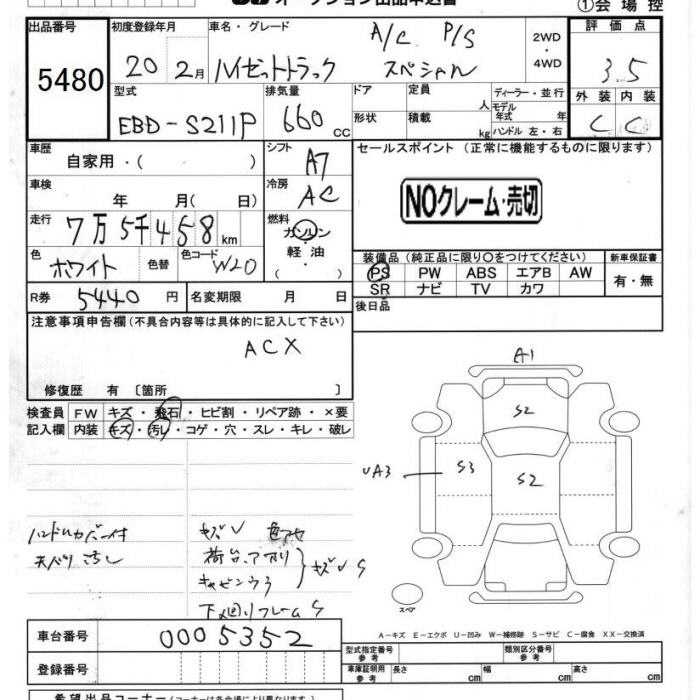 オークション出品申込書
①会場控
出品番号 5480
初度登録年月 20 2月
車名・グレード A/C P/S
ハイゼットトラック スペシャル
2WD・4WD
評価点 3.5
外装 C 内装 C
型式 EBD-S211P
排気量 660 cc
ドア 形状
定員 人
積載 kg
ディーラー・並行
モデル年式 年式
ハンドル 左・右
車歴 自家用・( )
シフト A7
セールスポイント (正常に機能するものに限ります)
NOクレーム・売切
車検 年 月( 日)
冷房 AC
走行 7万5千458km
燃料 ガソリン・軽油・
色 ホワイト 色替 色コード W20
装備品(純正品に限り○をつけてください) 新車保証書
PS PW ABS エアB AW 有・無
SR ナビ TV カワ
R券 5440円 名変期限 月 日
後日品
注意事項申告欄(不具合内容等は具体的に記入して下さい)
ACX
修復歴 有 〔箇所 〕
検査員 FW キズ・飛石・ヒビ割・リペア跡・×要
記入欄 内装 キズ・汚レ・コゲ・穴・スレ・キレ・破レ
A1
S2
UA3 S3 S2
スペア
ハンドルカバー付 キズV 色アセ
天バリ よごし 荷台、アオリ キズVS
下回りフレームS
A-キズ E-エクボ U-凹み W-補修跡 S-サビ C-腐食 XX-交換済
車台番号 0005352
型式指定番号 参考 類別区分番号 参考
登録番号
車庫証明用 参考 長さ cm 幅 cm 高さ cm
希望出品コーナー(コーナーは各会場により異なります)